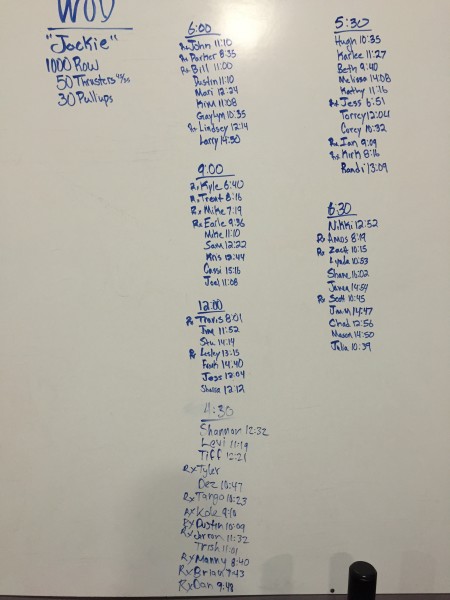 WOD
"Jackie"
1000 Row
50 Thrusters 45/35
30 Pullups
6:00
Rx John 11:10
Rx Parker 8:35
Rx Bill 11:00
Dustin 11:10
Mari 12:24
Kim 11:08
Graylyn 10:35
Rx Lindsey 12:14
Larry 14:30
9:00
Rx Kyle 6:40
Rx Trent 8:16
Rx Mike 7:19
Rx Earle 9:36
Mike 11:10
Sam 12:22
Kris 12:44
Cassi 15:16
Joel 11:08
12:00
Rx Travis 8:01
Jim 11:52
Stu 14:14
Rx Lesley 13:15
14:40
Jess 12:04
12:12
4:30
Shannon 12:32
Levi 11:19
Tiff 12:21
Rx Tyler
Dez 10:47
Rx Tango 10:23
Rx Kole 9:10
Rx Dustin 10:09
Rx 11:32
Trish 11:01
Rx Manny 8:40
Rx Brian 9:43
Rx Dan 9:48
5:30
Hugh 10:35
Karlee 11:27
Beth 9:40
Melissa 14:08
Kathy 11:16
Rx Jess 6:51
Torrey 12:04
Corey 10:32
Rx Ian 9:09
Rx Kirk 8:16
Randi 13:09
6:30
Nikki 12:52
Rx Amos 8:19
Rx Zach 10:15
Lynda 10:53
Shane 16:02
14:54
Rx Scott 10:45
14:47
Chad 12:56
Mason 14:50
Julia 10:39